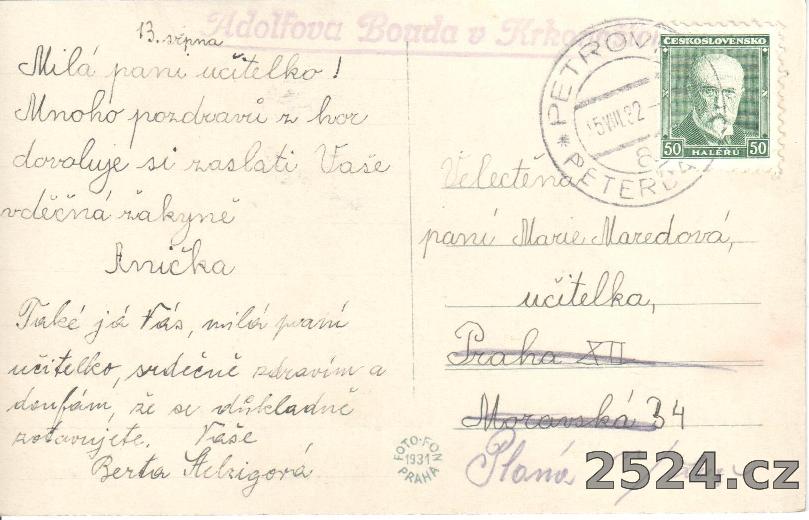 Adolfova Bouda v
13. srpna
Milá paní učitelko!
Mnoho pozdravů z hor
dovoluje si zaslati Vaše
vděčná žákyně
Anička
Také já Vás, milá paní
učitelko, srdečně zdravím a
doufám, že se důkladně
zotavujete. Vaše
Berta
ČESKOSLOVENSKO
50 HALÉŘŮ 50
Velectěná
paní Marie Maredová,
učitelka,
Praha XII
Moravská 34
Planá
FOTO-FON
1931
PRAHA
2524.cz